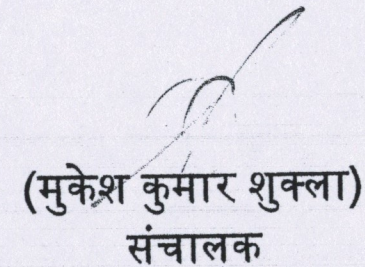 (मुकेश कुमार शुक्ला)
संचालक